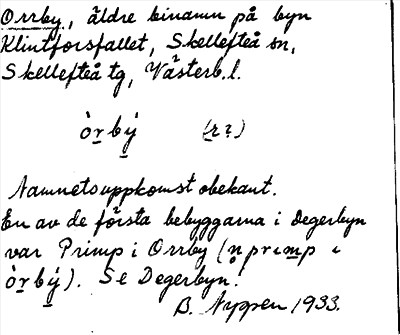 Orrby, äldre binamn på byn
Klintforsfallet, Skellefteå sn,
Skellefteå tg, Västerb. l.
òr̲bý̲ (r̲ ?)
Namnets uppkomst obekant.
En av de första bebyggarna i Degerbyn
var Primp i Orrby (n̥ prımp ı
òr̲bý̲). Se Degerbyn.
B. Nyppen 1933.